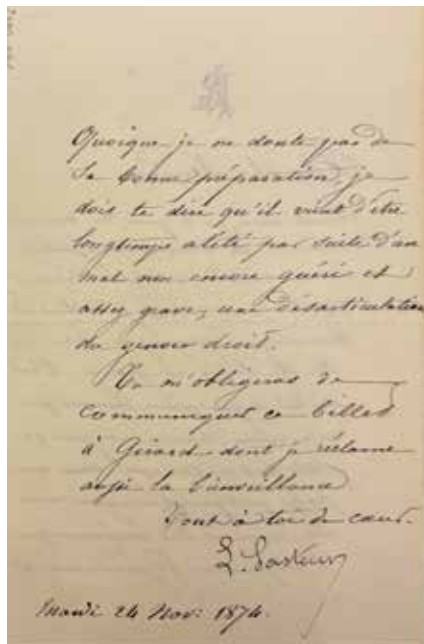 Quoique je ne doute pas de
sa bonne préparation, je
dois te dire qu'il vient d'être
longtemps alité par suite d'un
mal non encore guéri et
assez grave, une désarticulation
du genou droit.
Tu m'obligeras de
communiquer ce billet
à Girard dont je réclame
aussi la bienveillance
Tout à toi de cœur.
L. Pasteur
Mardi 24 Nov: 1874.